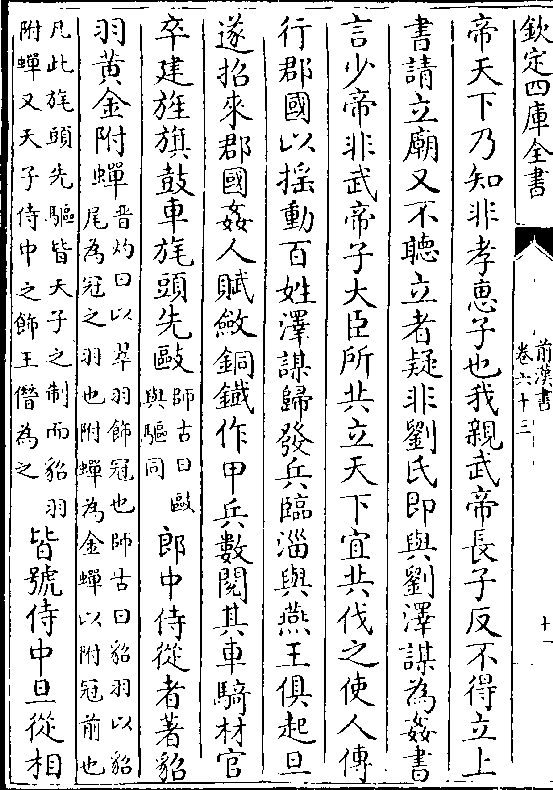 欽定四庫全書
前漢書
卷六十三
十一
帝天下乃知非孝惠子也我親武帝長子反不得立上
書請立廟又不聽立者疑非劉氏即與劉澤謀為姦書
言少帝非武帝子大臣所共立天下宜共伐之使人傳
行郡國以揺動百姓澤謀歸發兵臨淄與燕王俱起旦
遂招來郡國姦人賦斂銅鐵作甲兵數閱其車騎材官
卒建旌旗鼓車旄頭先敺師古曰敺與驅同郎中侍從者著貂
羽黄金附蟬晋灼曰以翠羽飾冠也師古曰貂羽以貂尾為冠之羽也附蟬為金蟬以附冠前也
凡此旄頭先驅皆天子之制而貂羽附蟬又天子侍中之飾王僭為之皆號侍中旦從相